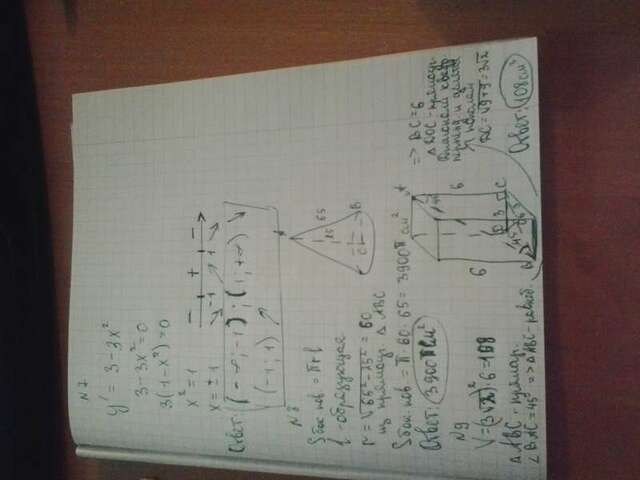 N 7
y' = 3 - 3x²
3 - 3x² = 0
3(1 - x²) = 0
x² = 1
x = ± 1
- + -
-1 1
Ответ: (-∞; -1); (1; +∞) ↘
(-1; 1) ↗
N 8
S бок пов = πrl
l - образующая
r = √65² - 25² = 60
из прямоуг. Δ ABC
25 65
C B
S бок. пов = π 60 · 65 = 3900π см²
Ответ: 3900π см²
N 9
V = (3√2)² · 6 = 108
Δ ABC - прямоуг.
∠ BAC = 45° => Δ ABC - равноб.
=> BC = 6
Δ BOC - прямоуг.
√9+9 = 3√2
6 6
45°
3
C
Ответ: 108 см³